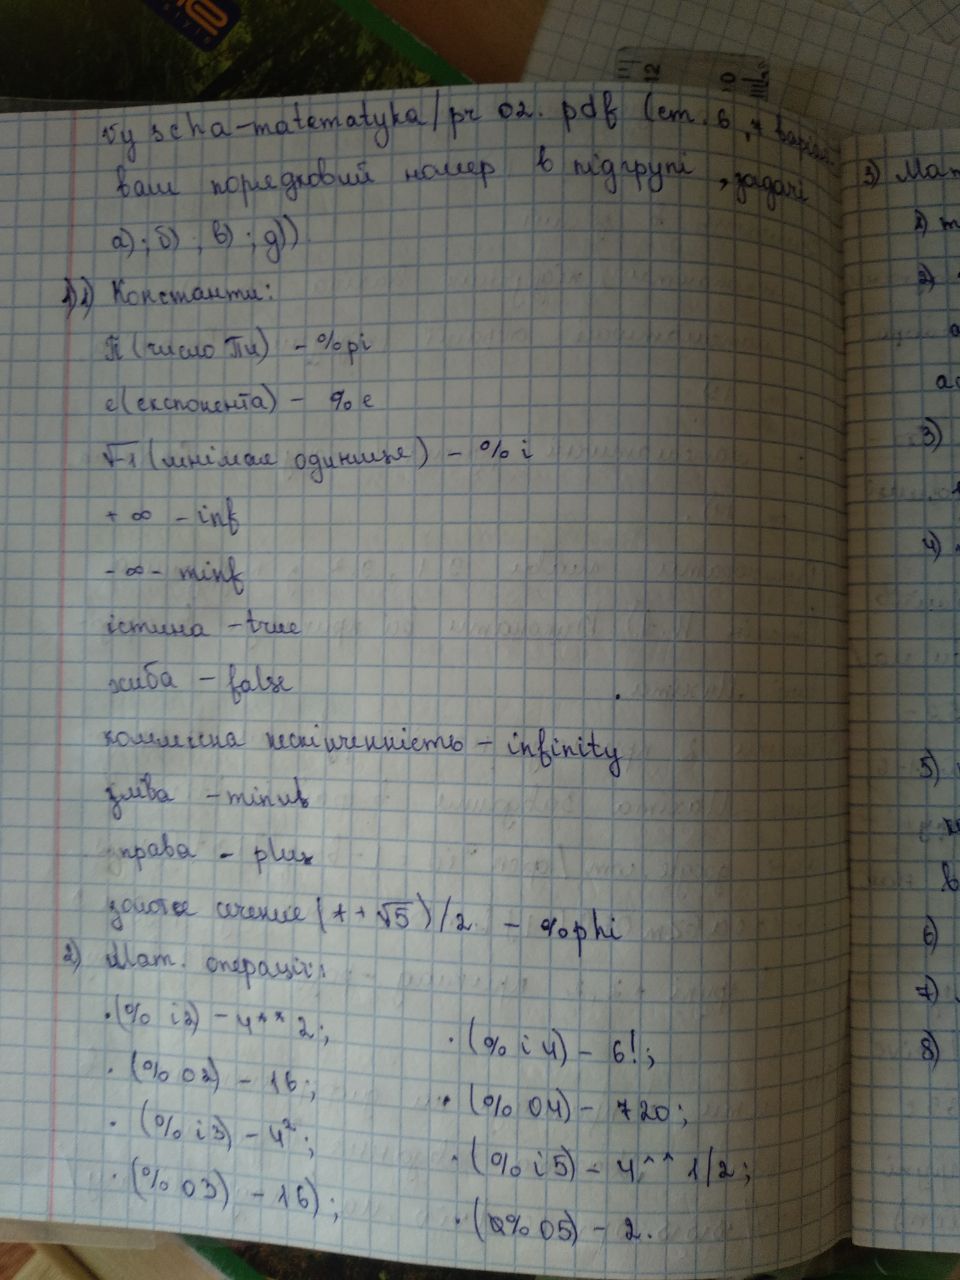 vyscha-matematyka/pr 02. pdf (ст. 6, 7 варіант
ваш порядковий номер в підгрупі, задачі
а); б); в); д))
1) 1) Константи:
π (число Пи) - %pi
е (експонента) - %e
√-1 (мнімая одиниця) - %i
+ ∞ - inf
- ∞ - minf
істина - true
хиба - false
комплексна нескінченність - infinity
зліва - minus
права - plus
золотое сечение (1 + √5)/2 - %phi
2) Мат. операції:
· (% i2) - 4^^2;
· (% o2) - 16;
· (% i3) - 4²;
· (% o3) - 16);
· (% i4) - 6!;
· (% o4) - 720;
· (% i5) - 4^^1/2;
· (% o5) - 2.
3) Мат
1)
2)
3)
4)
5)
6)
7)
8)
12
10